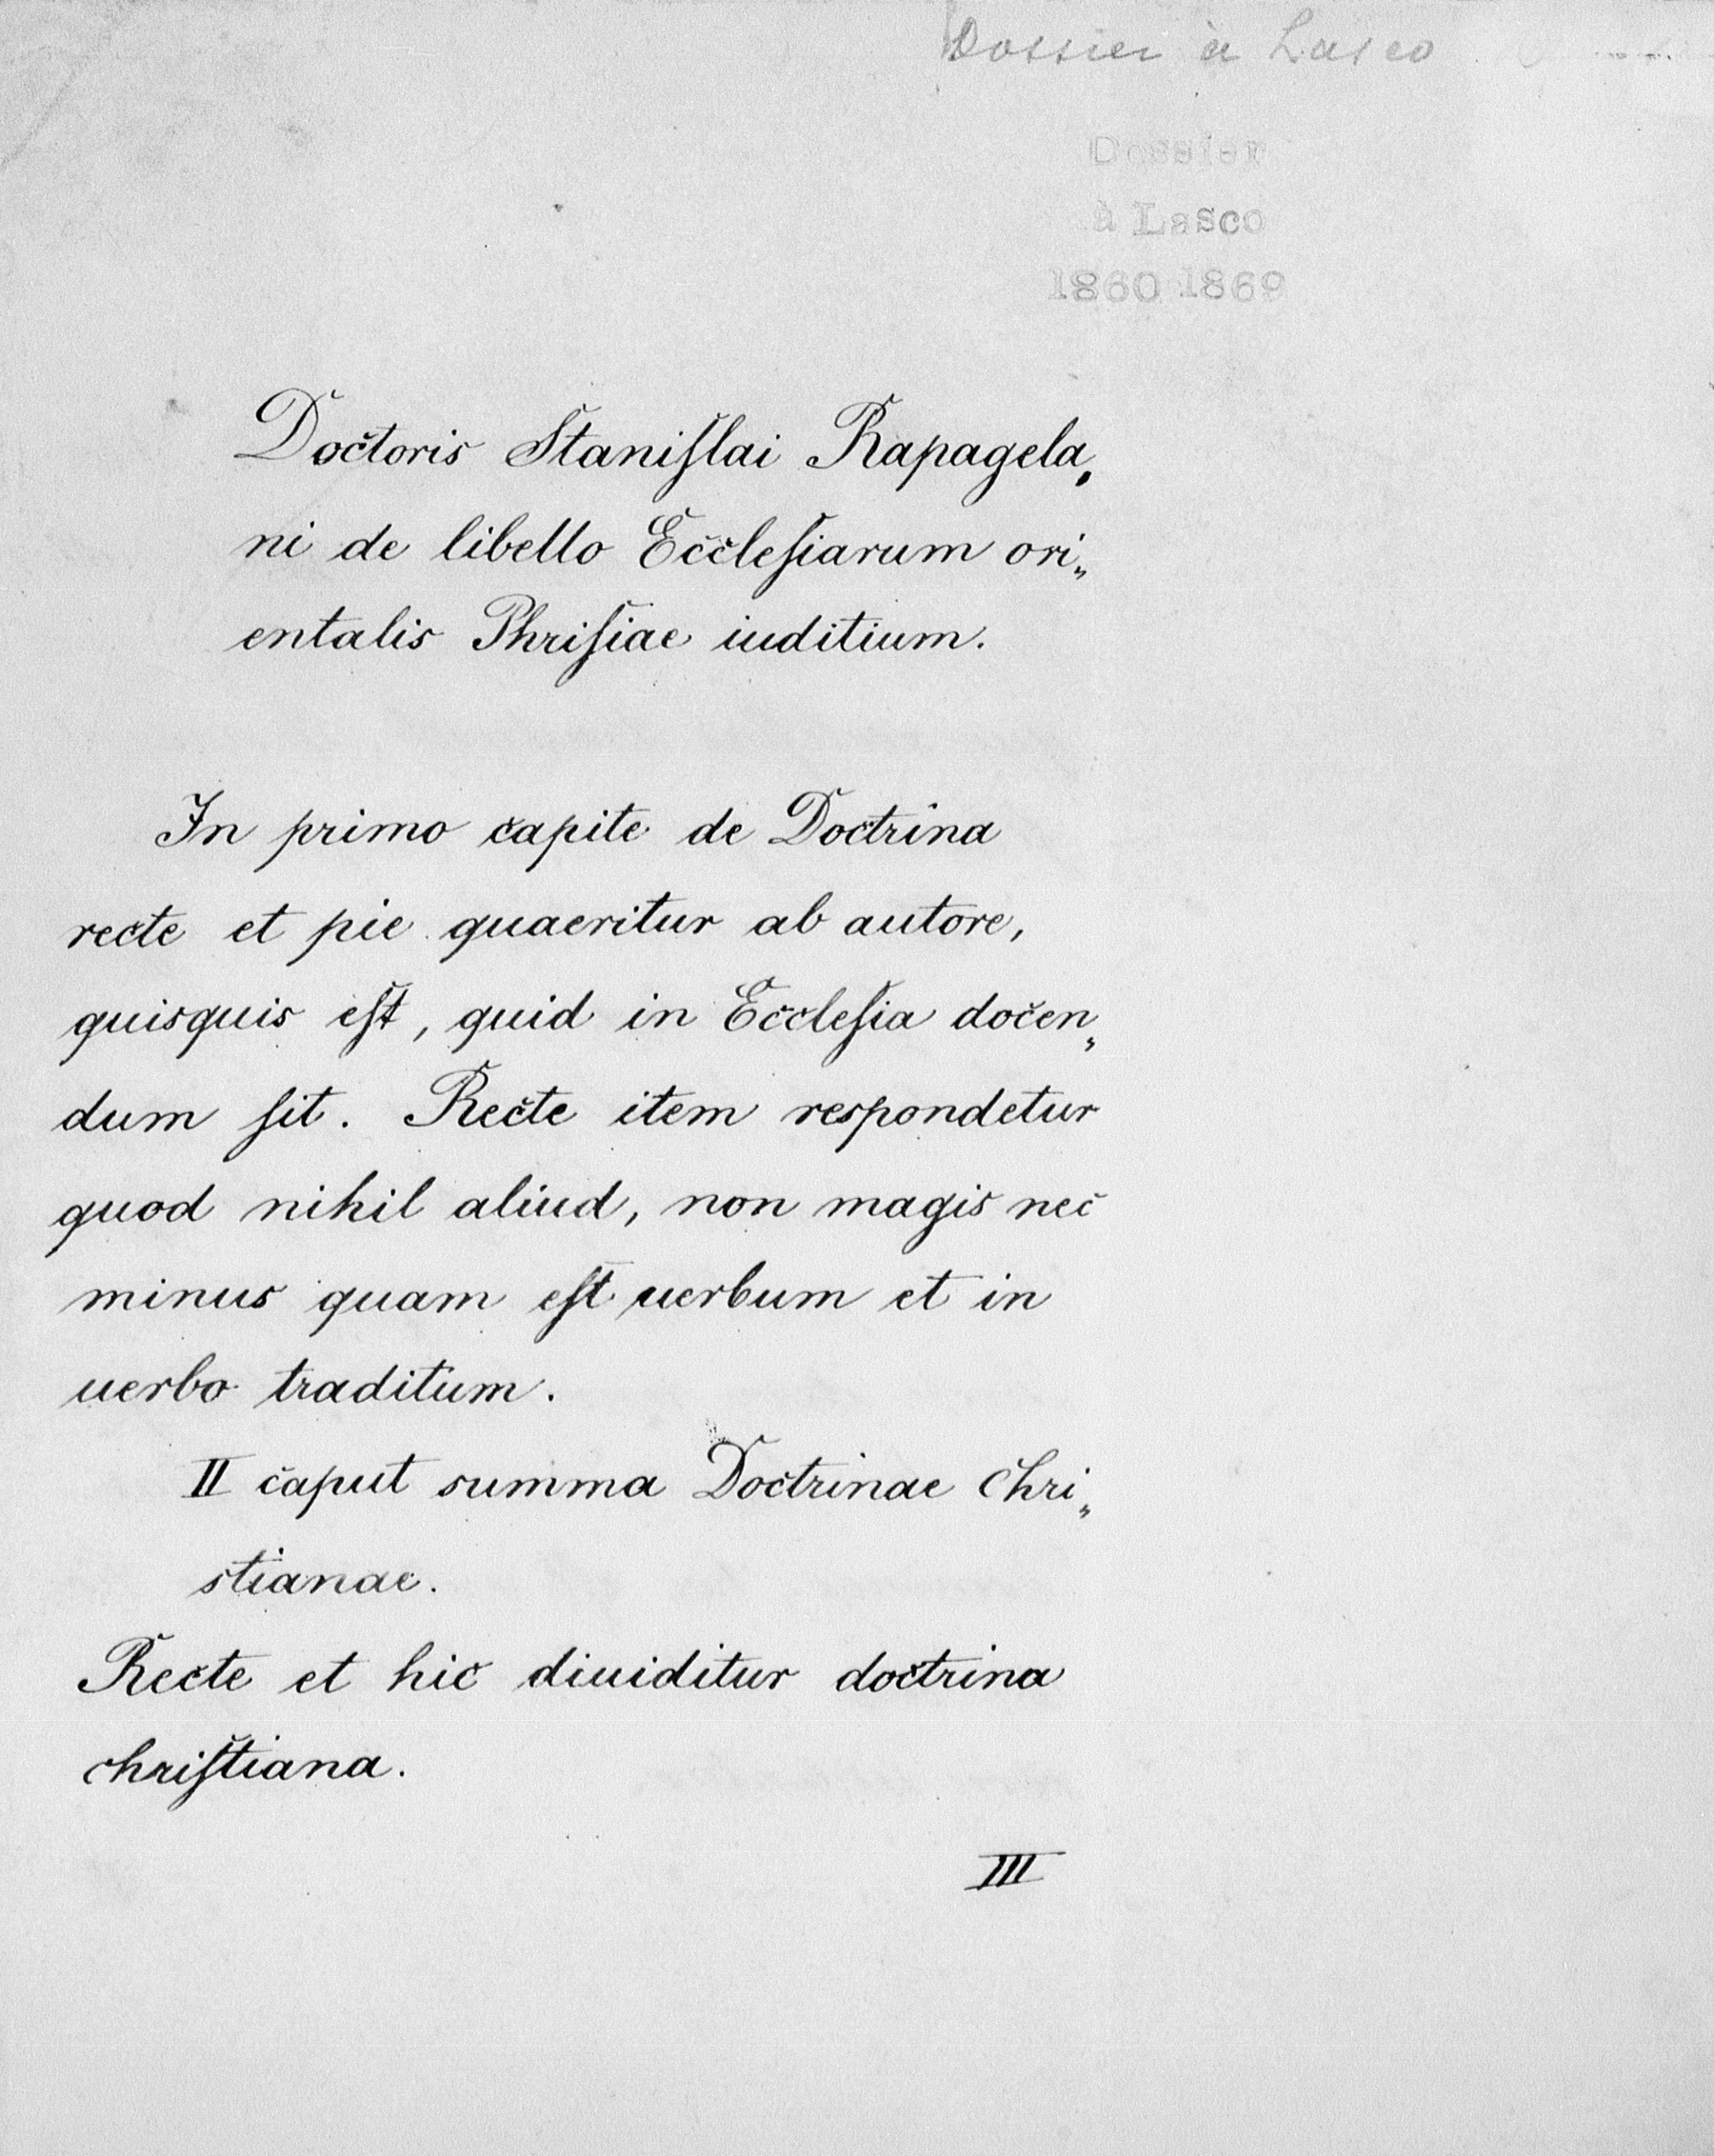 Dossier à Lasco
Dossier
à Lasco
1860 1869
Doctoris Staniſlai Rapagela„
ni de libello Eccleſiarum ori„
entalis Phriſiae iuditium.
In primo capite de Doctrina
recte et pie quaeritur ab autore,
quisquis eſt, quid in Eccleſia docen„
dum ſit. Recte item respondetur
quod nihil aliud, non magis nec
minus quam eſt uerbum et in
uerbo traditum.
II caput summa Doctrinae Chri„
stianae.
Recte et hic diuiditur doctrina
chriſtiana.
III